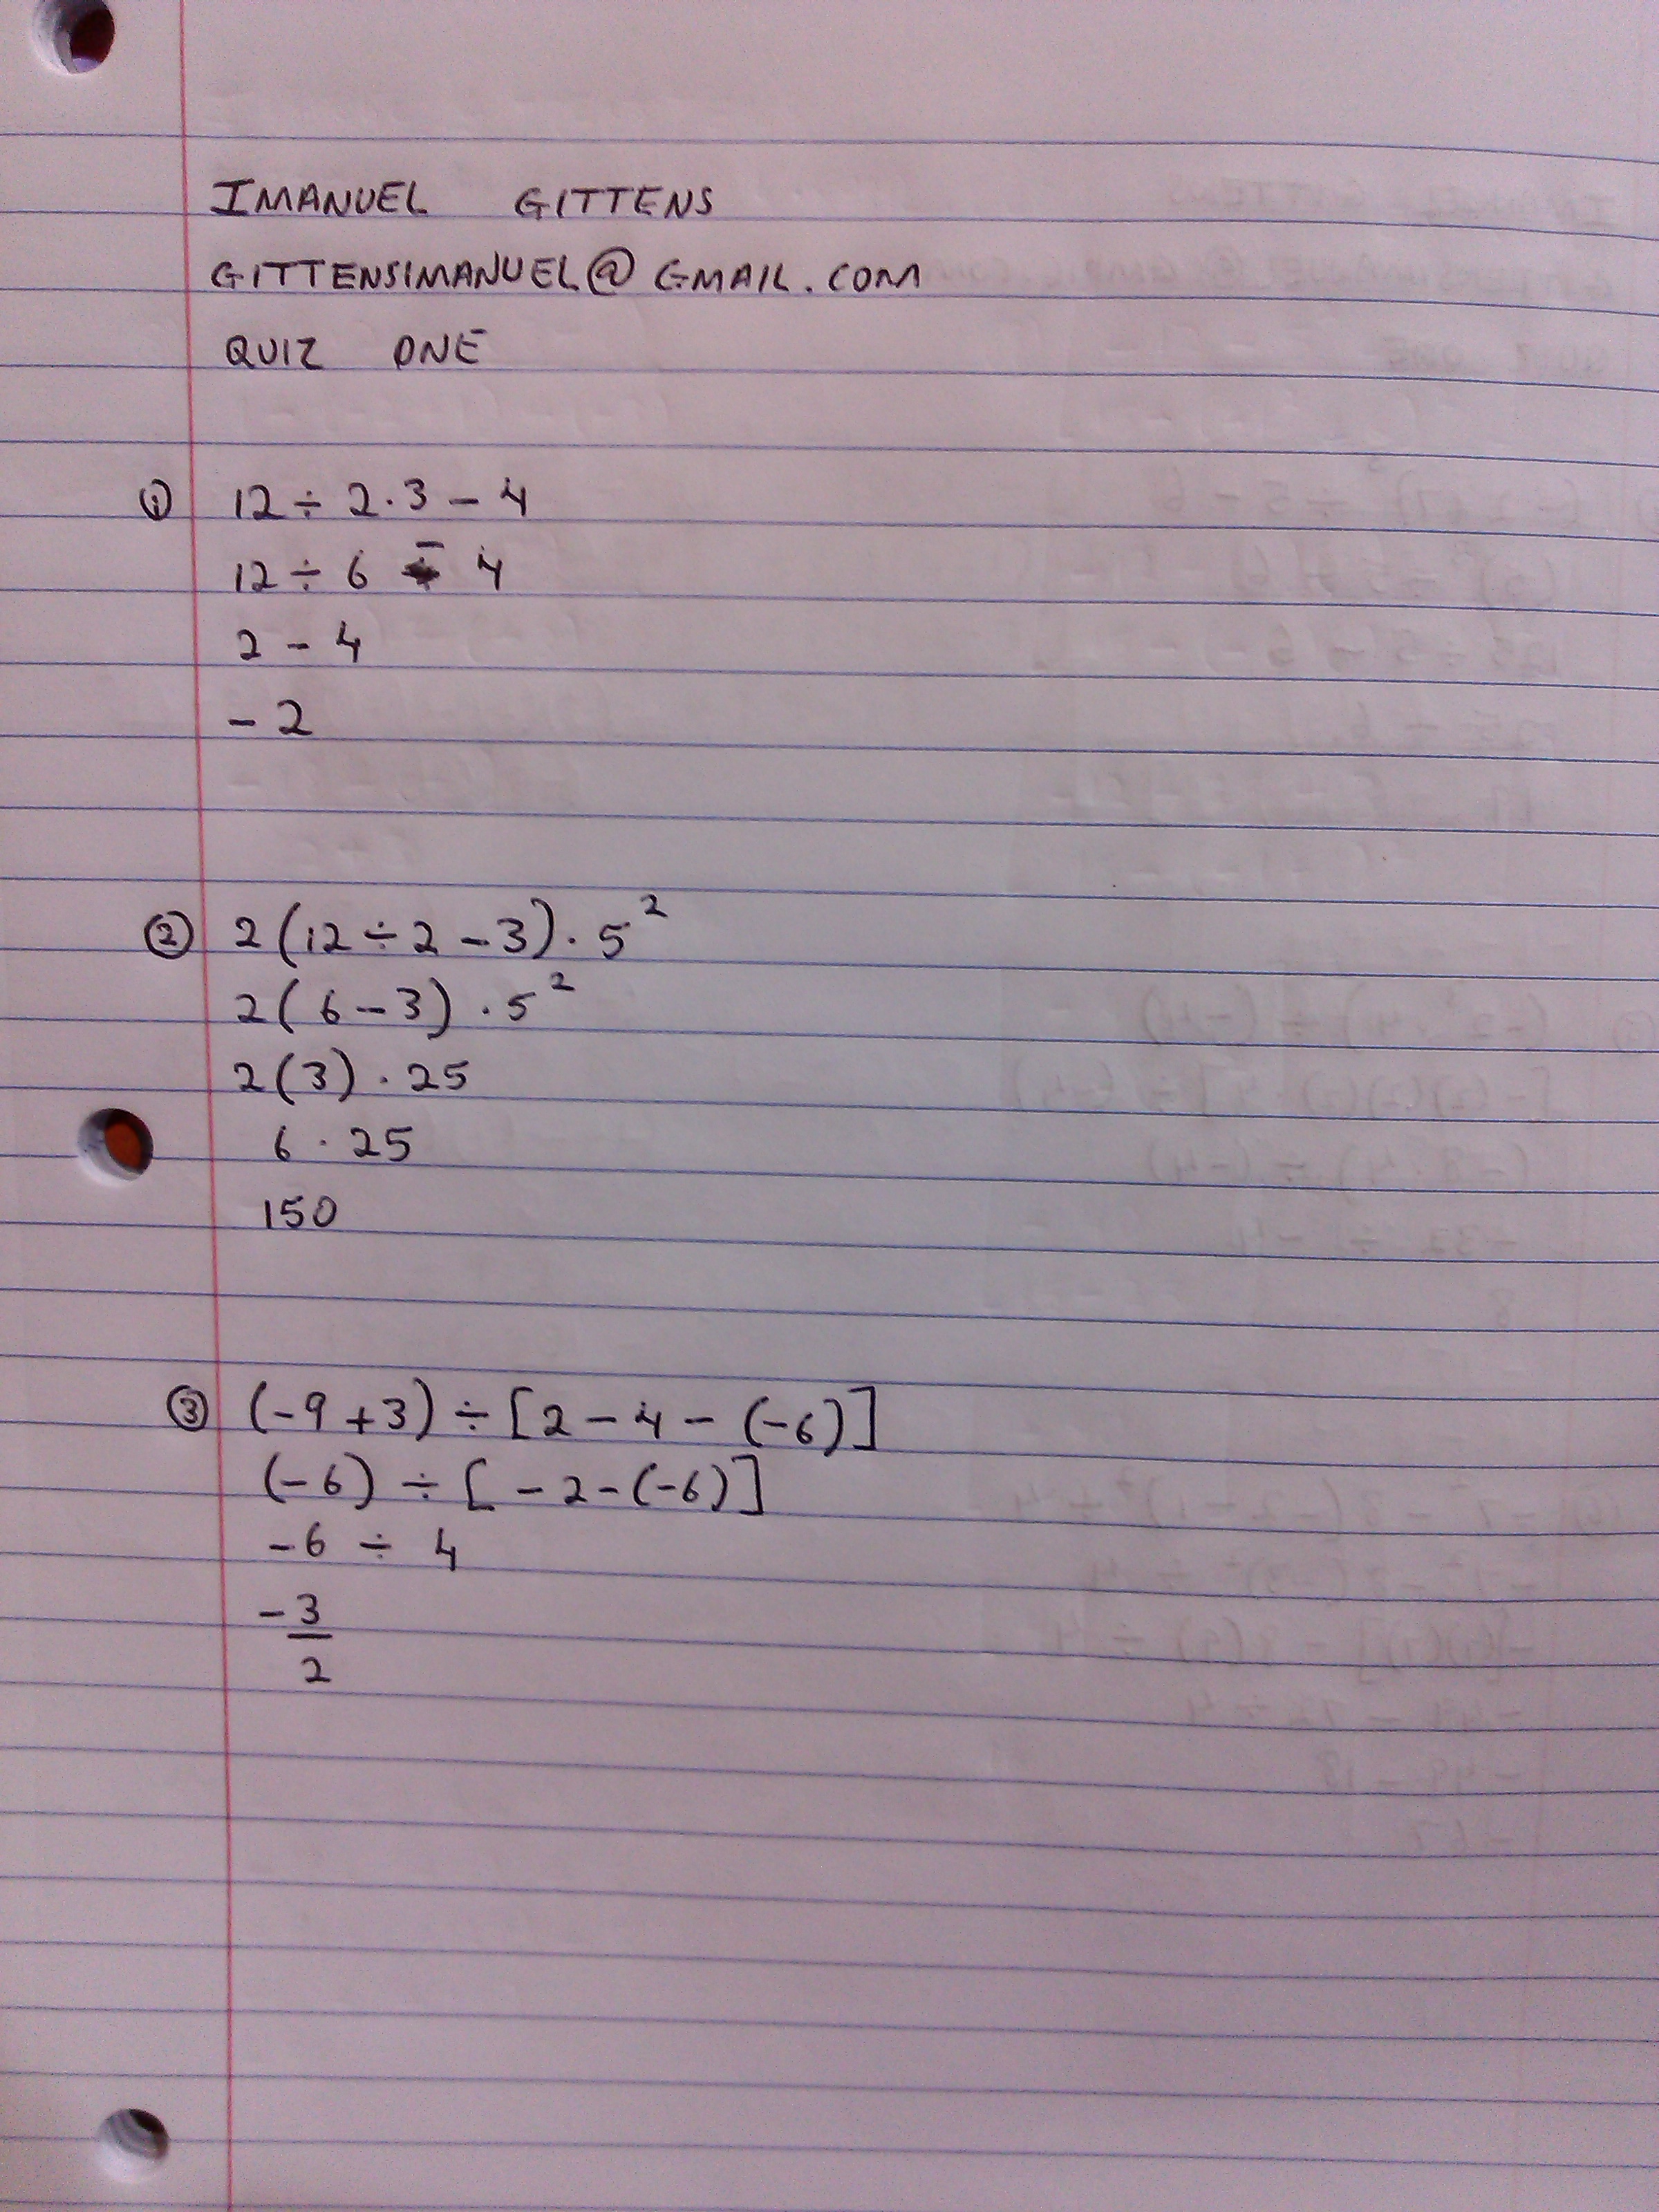 IMANUEL GITTENS
GITTENSIMANUEL@GMAIL.COM
QUIZ ONE
① 12 ÷ 2 · 3 − 4
12 ÷ 6 − 4
2 − 4
− 2
② 2(12 ÷ 2 − 3) · 5²
2(6 − 3) · 5²
2(3) · 25
6 · 25
150
③ (−9 + 3) ÷ [2 − 4 − (−6)]
(−6) ÷ [−2 − (−6)]
−6 ÷ 4
−3
2